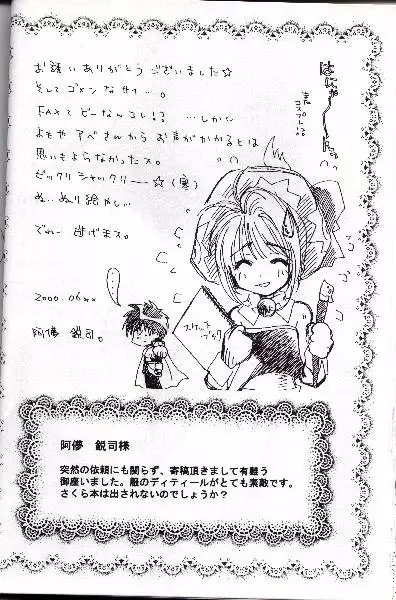 お誘いありがとうございました☆
そしてゴメンなサイ…。
FAXでどーなんでし!?…しかし
よもやアベさんからお声がかかるとは
思いもよらなかったス。
ビックリシャックリー☆(寒)
ぬ…ぬり絵やし…
でわー 逃げまス。
2000.06xx
阿儚 鋭司。
はにゃーーん。
また
コスプレ!?
…。
スケッチ
ブック
阿儚 鋭司様
突然の依頼にも関らず、寄稿頂きまして有難う
御座いました。服のディティールがとても素敵です。
さくら本は出されないのでしょうか?